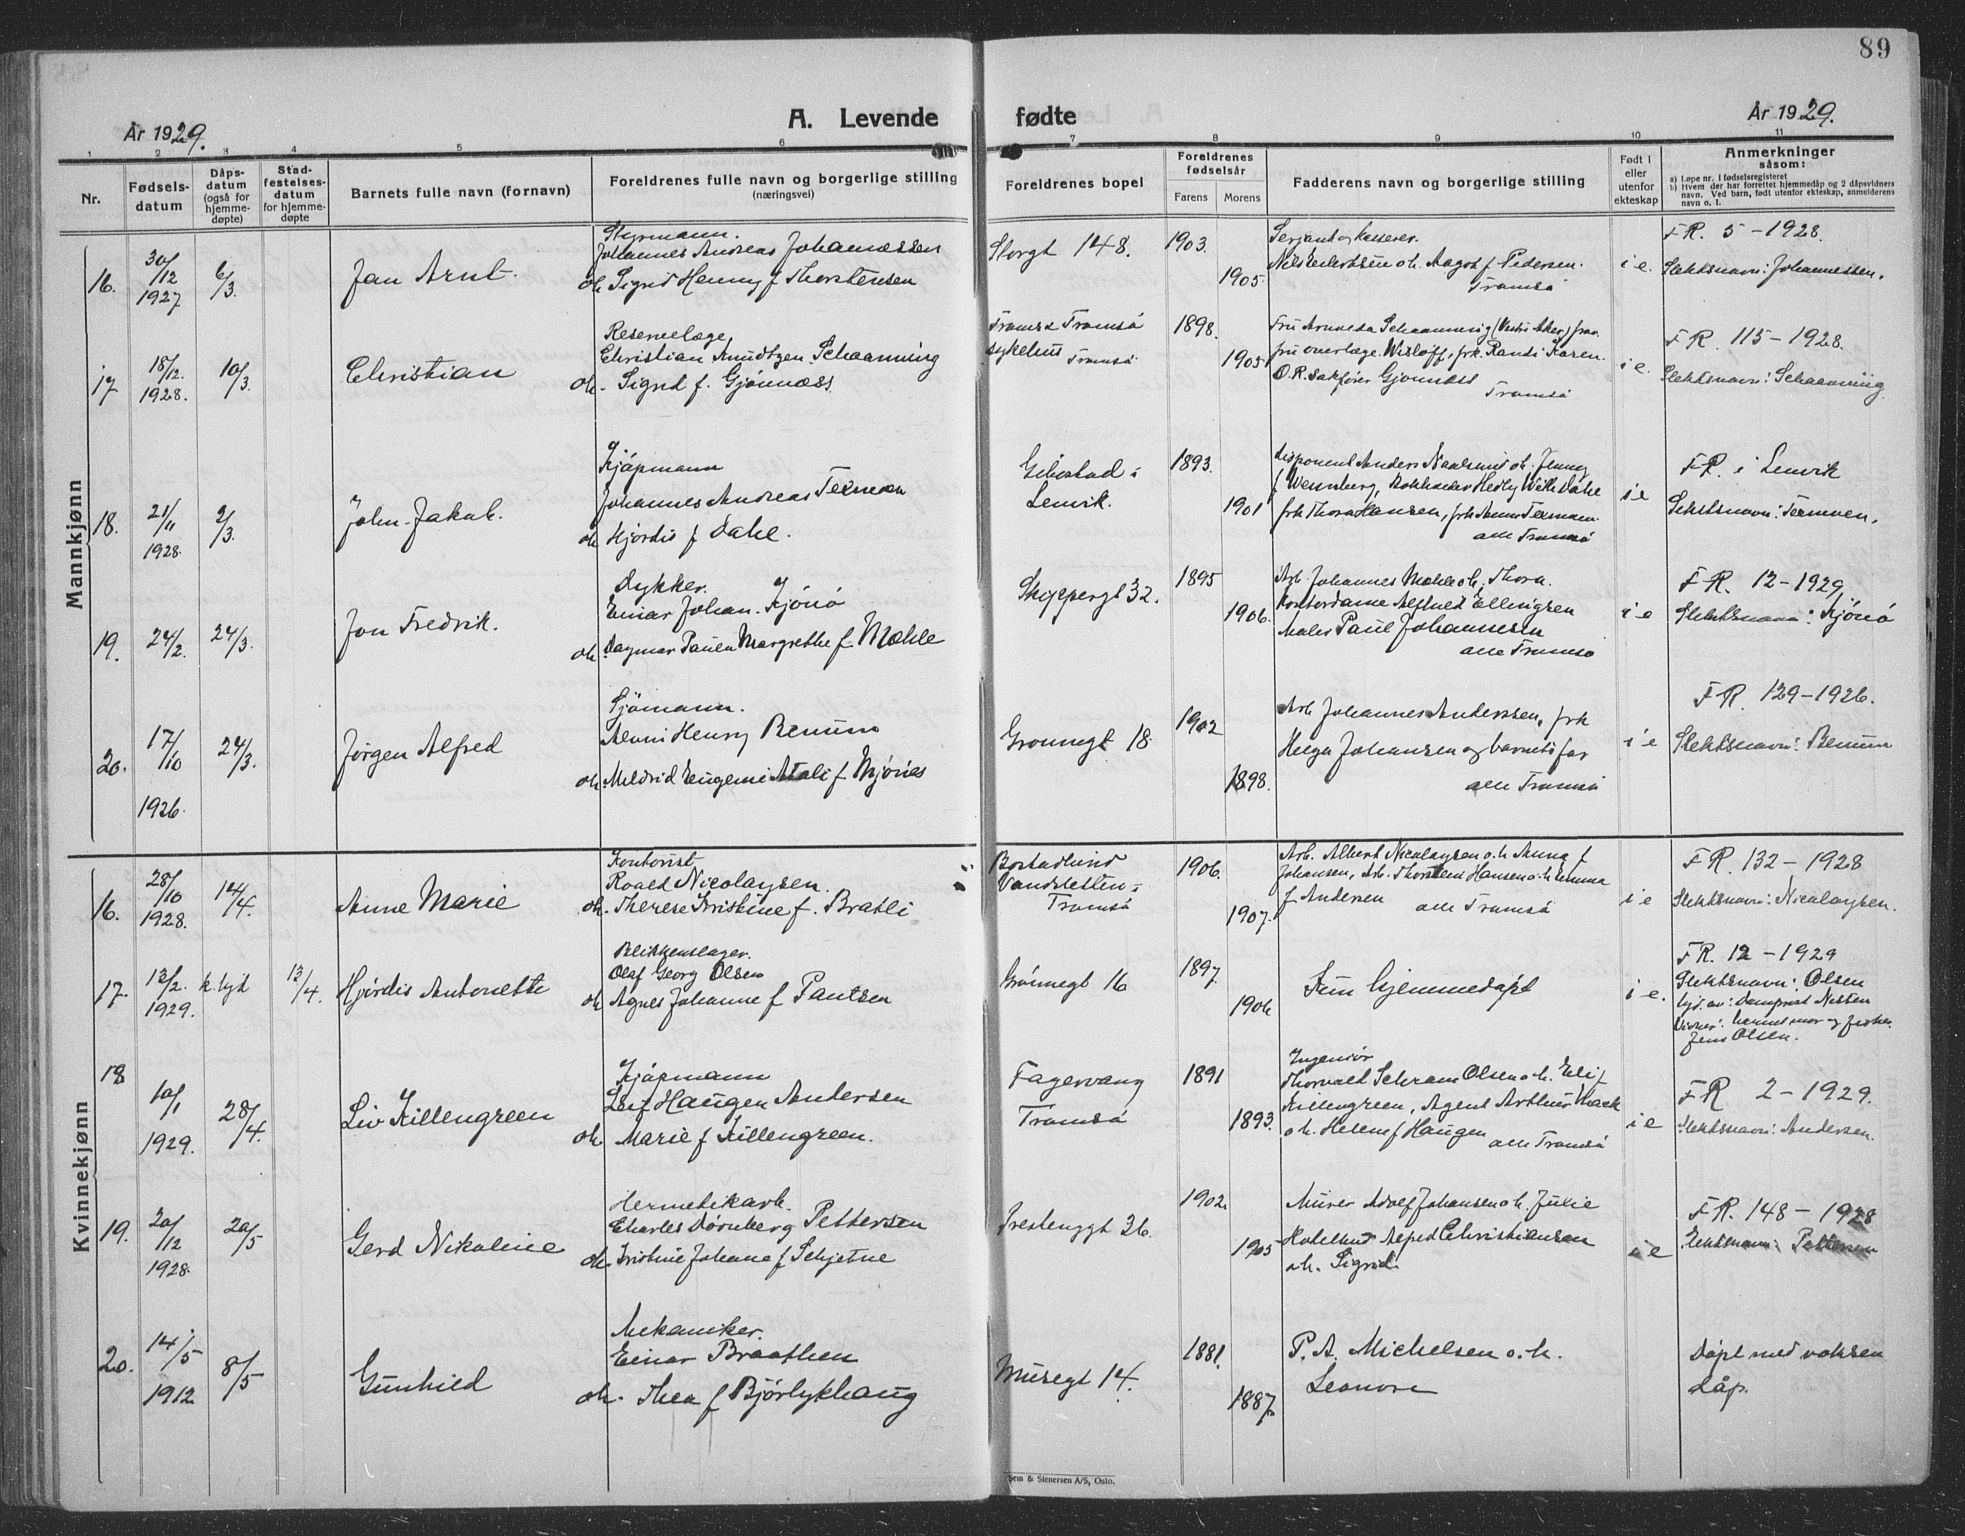 89
A. Levende fødte
År 1929.
År 1929.
1 2 3 4 5 6 7 8 9 10 11
Nr.
Fødsels-
datum
Dåps-
datum
(også for
hjemme-
døpte)
Stad-
festelses-
datum
for hjemme-
døpte
Barnets fulle navn (fornavn)
Foreldrenes fulle navn og borgerlige stilling
(næringsvei)
Foreldrenes bopel
Foreldrenes
fødselsår
Farens Morens
Fadderens navn og borgerlige stilling
Født i
eller
utenfor
ekteskap
Anmerkninger
såsom:
a) Løpe nr. i fødselsregisteret
b) Hvem der har forrettet hjemmedåp og 2 dåpsvidners
navn. Ved barn, født utenfor ekteskap, anmelderens
navn o. l.
Mannkjønn
16. 30/12 1927 6/3. Jan Arnt.
Styrmann.
Johannes Andreas Johannessen
oh. Sigrid Henny f Thorstensen
Storgt 148. 1903. 1905.
Serjant og kasserer
Nils Eilertsen o.h. Aagot f Pedersen.
Tromsø
i e.
F.R. 5 - 1928.
Slektsnavn: Johannessen.
17 18/12. 1928. 10/3. Christian
Reservelæge
Christian Knudtzen Schaanning
oh. Sigrid f. Gjønnæss.
Troms & Tromsø
sykehus Tromsø
1898. 1905
fru overlæge. Wisløff, frk. Randi Karen.
O.R. sakfører Gjønnæss
Tromsø
i e.
F.R. 115 - 1928.
Slektsnavn: Schaanning
18. 21/11 1928. 2/3. John Jakob.
Kjøpmann
Johannes Andreas Termoen
oh Hjørdis f Dahl.
Gibostad i
Lenvik.
1893. 1901
disponent Anders Naalsund o.h. Jenny
f Wennberg,
frk Thora Hansen, frk Anna Termoen.
alle Tromsø
i e
F.R. i Lenvik
Slektsnavn: Termoen.
19. 24/2. 24/3. Jon Fredrik.
Dykker.
Einar Johan. Kjønø
oh. Dagmar Paula Margrethe f Mohle
Skippergt 32. 1895 1906.
Arb. Johannes Mohle o.h. Thora.
Kontordame Alfhild Ellingsen
Maler Paul Johannesen
alle Tromsø
i e
F.R. 12 - 1929.
Slektsnavn: Kjønø
20. 17/10 1926. 24/3. Jørgen Alfred
Sjømann.
Henry Benum
oh. Meldrid Eugeni Atali f Mjønes
Grønnegt 18. 1902 1898.
Arb. Johannes Anderssen, frk
Helga Johansen og barnets far
alle Tromsø
i e
F.R. 129 - 1926.
Slektsnavn: Benum
Kvinnekjønn
16. 28/10 1928. 14/4. Anne Marie
Kontorist
Roald Nicolaysen.
oh. Therese Kristine f. Bratli
Bostadlund
Vandsletten -
Tromsø
1906. 1907.
Arb. Albert Nicolaysen o.h. Anna f
Johansen, Arb. Thorstein Hansen o.h. Emma
f Andersen alle Tromsø
i e
F.R. 132 - 1928
Slektsnavn: Nicolaysen.
17. 13/2. 1929. k. lyst 13/4. Hjørdis Antonette
Blikkenslager.
Olaf Georg Olsen
oh. Agnes Johanne f Pantsen
Grønnegt 16 1897. 1906
Som hjemmedøpt
i e.
F.R. 12 - 1929
Slektsnavn: Olsen
Vidner: barnets mor og fisker
Jens Olsen.
18 10/1 1929. 28/4. Liv Killengreen
Kjøpmann
Leif Haugen Andersen
oh. Marie f Killengreen.
Fagervang
Tromsø
1891 1893.
Ingeniør
Thorvald Schram Olsen o.h. Eli f
Killengreen, Agent Arthur Haack
o.h. Helene f Haugen alle Tromsø
i e
F.R 2 - 1929.
Slektsnavn: Andersen.
19. 20/12 1928. 20/5 Gerd Nikoline
Hermetikarb.
Charles Dørnberg Pettersen
oh. Kristine Johane f Schjetne
Prestenggt 26. 1902. 1905
Murer Adolf Johansen o.h. Julie
Alfred Christiansen
o.h. Sigrid.
i e
F.R. 148 - 1928
Slektsnavn: Pettersen
20. 14/5 1912. 8/5 Gunhild
Mekaniker.
Einar Braathen
oh. Thea f Bjørlykhaug
Muregt 14. 1881. 1887.
P. A. Michelsen o.h.
Leonore
Døpt med voksen
dåp.
Sem & Stenersen A/S, Oslo.